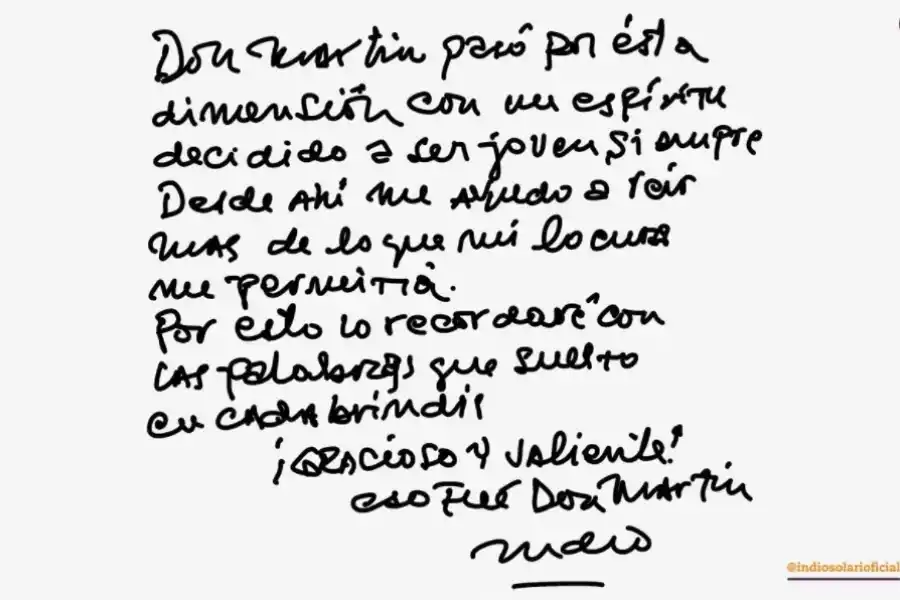 Don Martin pasó por ésta
dimensión con un espíritu
decidido a ser joven, siempre
Desde ahí me ayudo a reir
mas de lo que mi locura
me permitía.
Por esto lo recordaré con
las palabras que suelto
en cada brindis
¡GRACIOSO Y VALIENTE!
eso Fué Don Martin
Indio
@indiosolarioficial